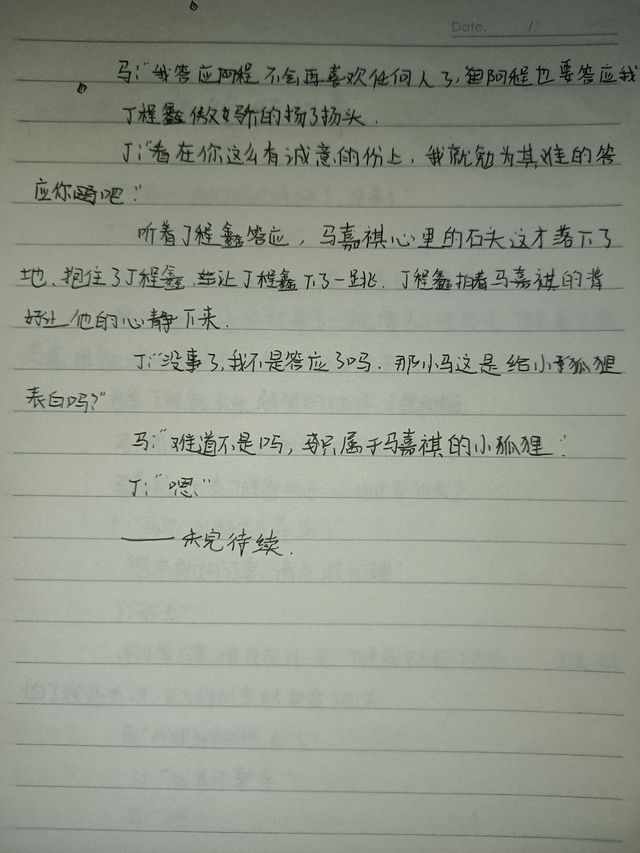 Date. /
马:"我答应阿程不会再喜欢任何人了,但阿程也要答应我
丁程鑫傲娇的扬了扬头.
J:"看在你这么有诚意的份上,我就勉为其难的答
应你吧"
听着丁程鑫答应,马嘉祺心里的石头这才落下了
地、抱住了丁程鑫,让丁程鑫下了一跳.丁程鑫拍着马嘉祺的背
好让他的心静下来.
J:"没事了,我不是答应了吗.那小马这是给小狐狸
表白吗?"
马:"难道不是吗,只属于马嘉祺的小狐狸"
J:"嗯"
——未完待续.